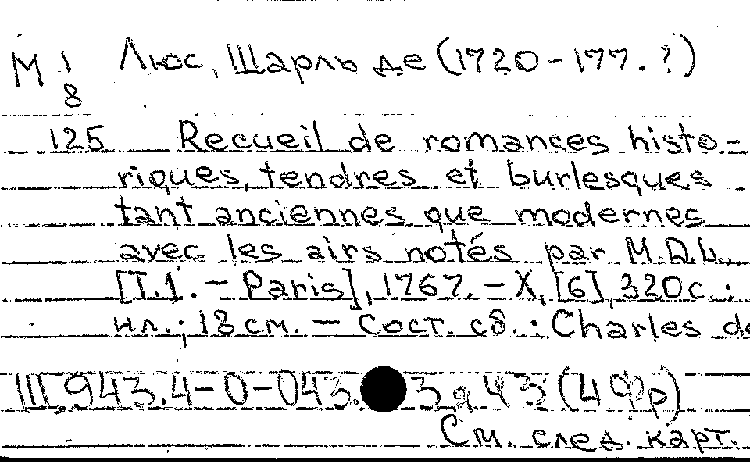 М 1/8 Люс, Шарль де (1720-177.?)
125 Recueil de romances histo-
riques, tendres et burlesques
tant anciennes que modernes
avec les airs notés par M.D.L.
[T.1. - Paris], 1767. - X, [6], 320 с. :
ил.; 18 см. - Сост. сб. : Charles de
III, 943.4-0-043. 3я43 (4Фр)
См. след. карт.